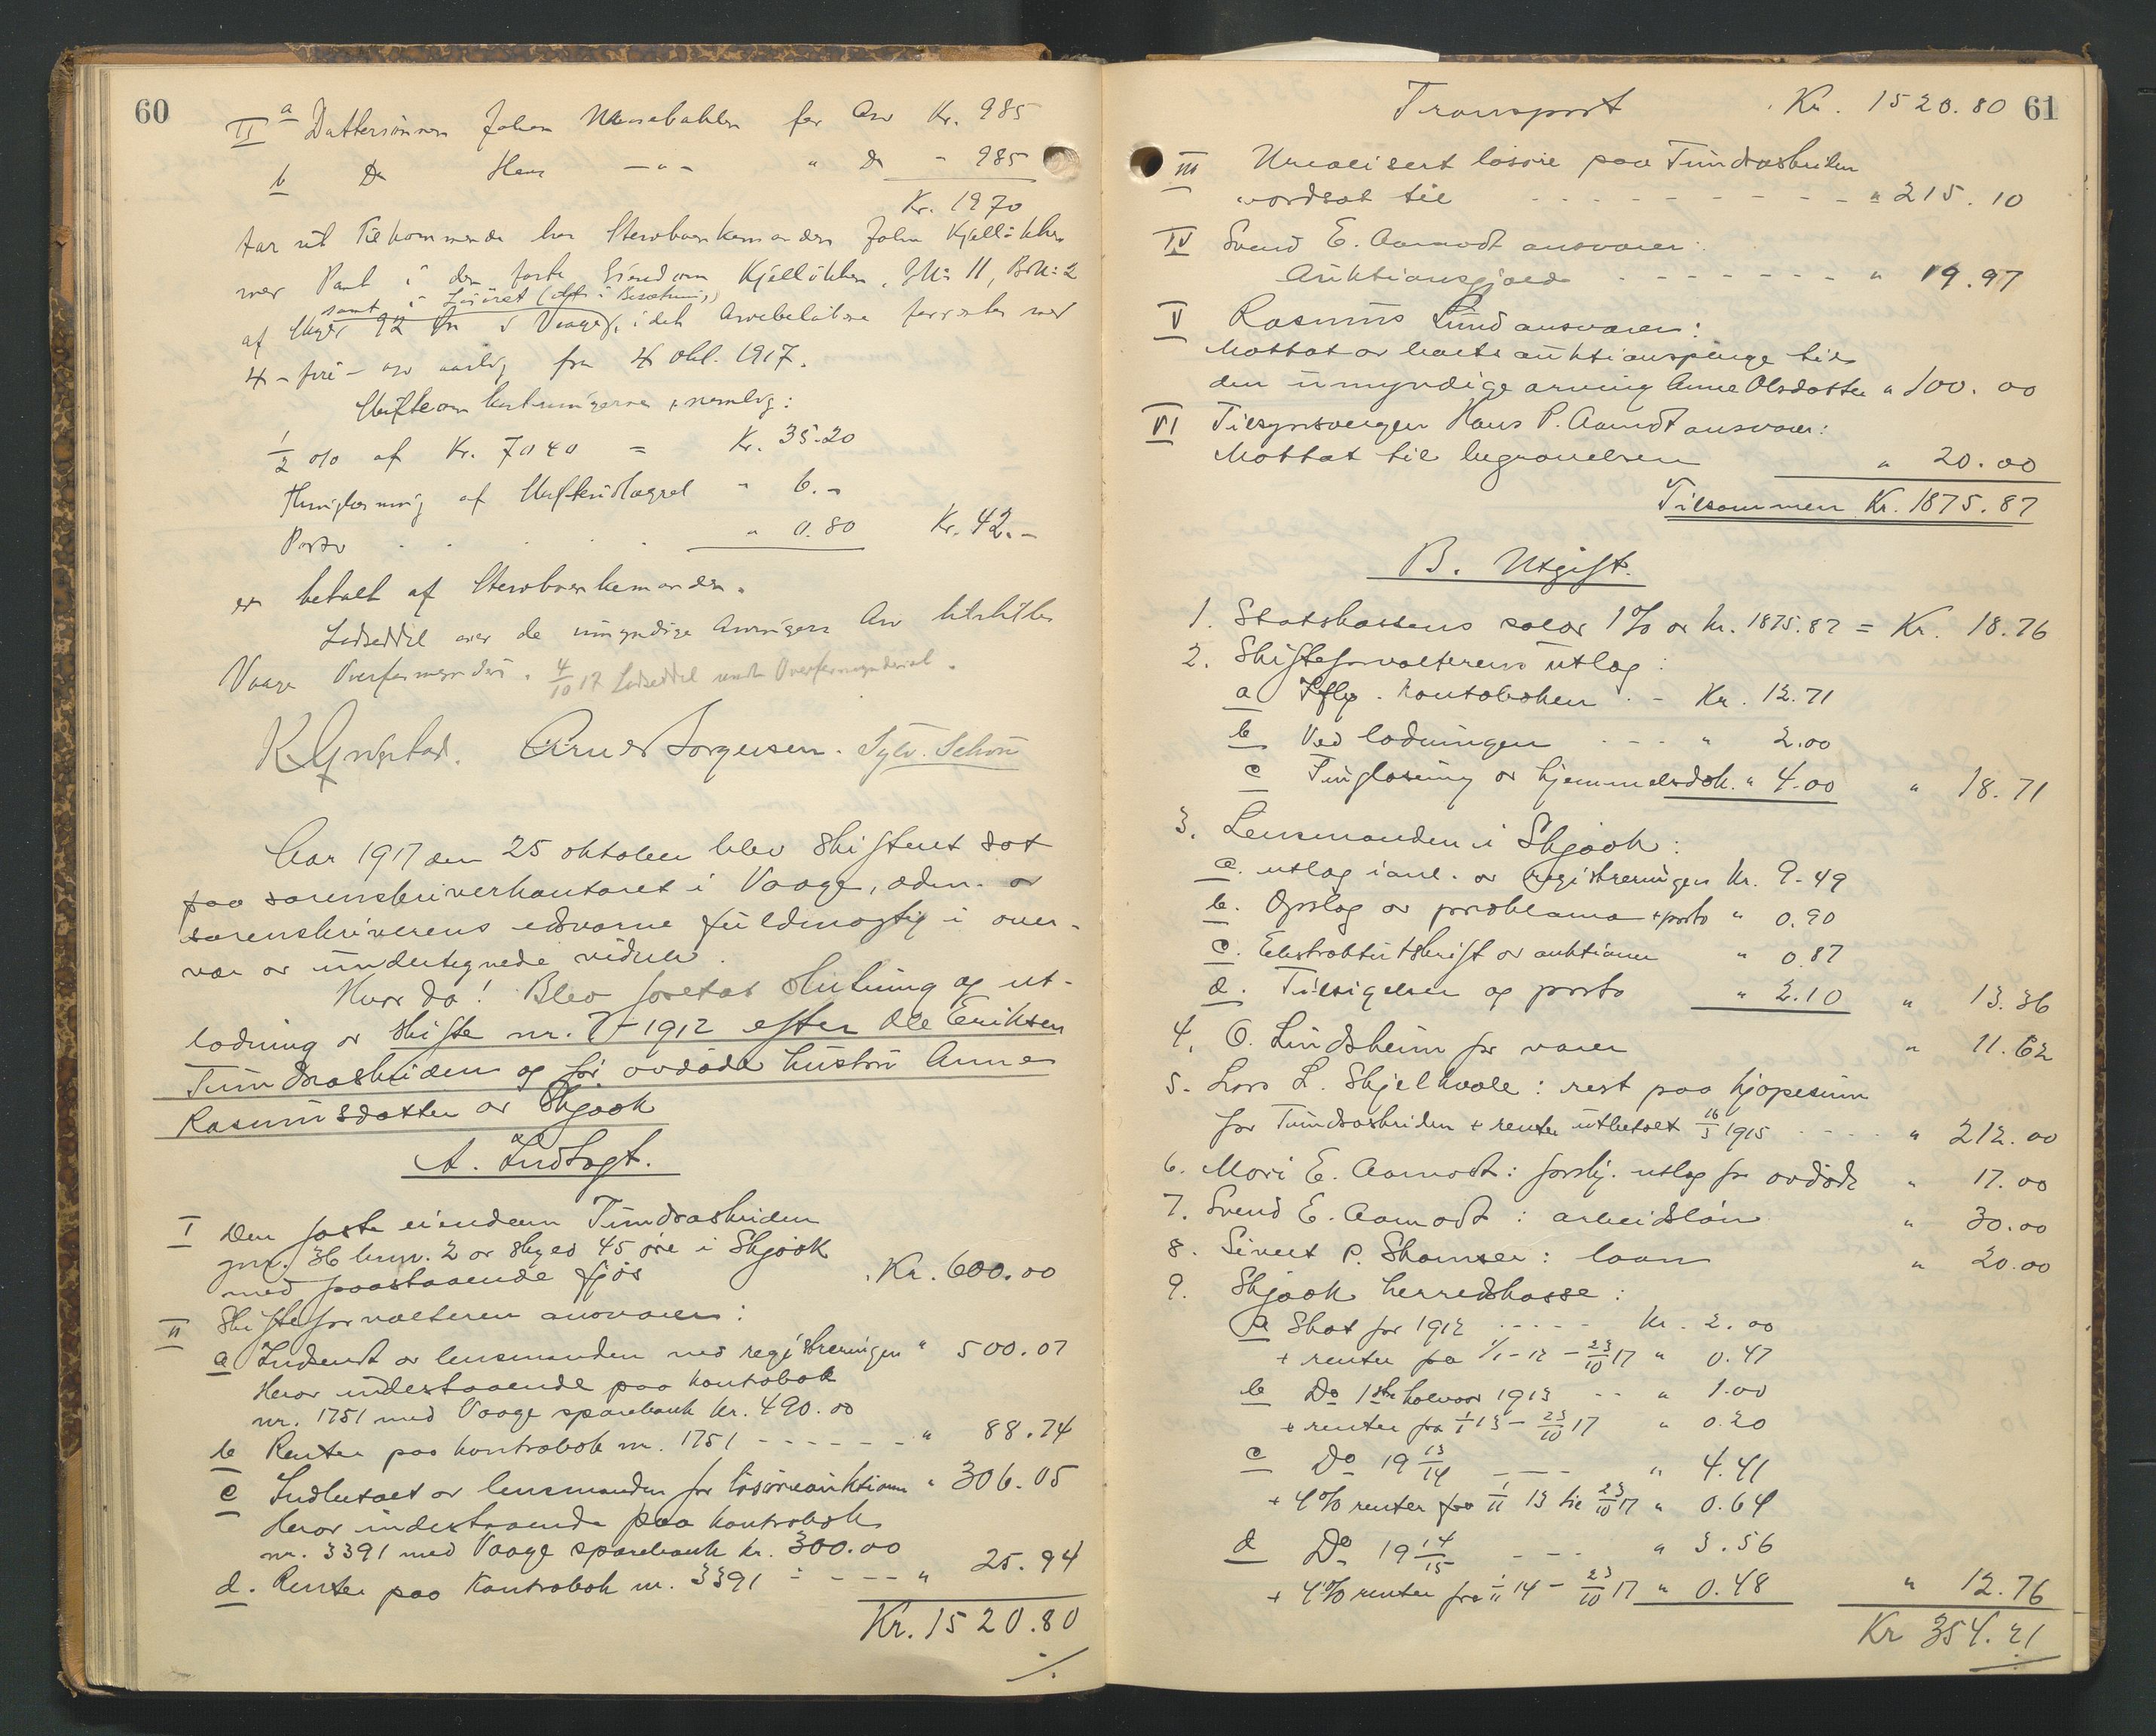 60
II a Dattersönnen Johan far Arv Kr. 985
b Do Hans — " — " Do - 985
Kr. 1970
For sit Tilkommende har Stervboenkemanden Johan Kjellökken
mer Pant i den faste Eiendom Kjellökken, Gn: 11, Bn: 2
samt i Lösöret (ogsaa i Besætning)
af Skyld 92 Öre i Vaage, idet Arvebelöbene forrentes med
4 - fire - o/o aarlig fra 4 okt. 1917.
Skifteomkostningerne, nemlig:
1/2 o/o af Kr. 7040 = Kr. 35.20
Thinglæsning af Skifteudlægget " 6.-
Porto . . . . . " 0.80 Kr. 42.-
er betalt af Stervboenkemanden.
Lodseddel over de umyndige Arvingers Arv tilstilles
Vaage Overformynderi. 4/10 17 Lodseddel sendt Overformynderiet.
Arne Jørgensen. Sylv. Schou
Aar 1917 den 25 oktober blev skifteret sat
paa sorenskriverkontoret i Vaage, adm. av
sorenskriverens edsvorne fuldmægtig i over-
vær av undertegnede vidner.
Hvor da! Blev foretat slutning og ut-
lodning av skifte nr. 7-1912 efter Ole Eriksen
Tundraskriden og før avdøde hustru Anne
Rasmusdatter av Skjaak
A. Indtægt.
I Den faste eiendom Tundraskriden
gnr. 36 brnr. 2 av skyld 45 øre i Skjaak
med paastaaende fjøs . Kr. 600.00
II Skifteforvalteren ansvarer:
a Indsendt av lensmanden ved registreringen " 500.07
Herav indestaaende paa kontrabok
nr. 1751 med Vaage sparebank kr. 490.00
b Renter paa kontrabok nr. 1751 - - - - - - " 88.74
c Indbetalt av lensmanden for løsøreauktionen " 306.05
Herav indestaaende paa kontrabok
nr. 3391 med Vaage sparebank kr. 300.00
d. Renter paa kontrabok nr. 3391 - - - - - " 25.94
Kr. 1520.80
./.
Transport . Kr. 1520.80 61
III Urealisert løsøre paa Tundraskriden
værdsat til - - - - - - - - - - " 215.10
IV Svend E. Aamodt ansvarer:
Auktionsgjæld - - - - - - - " 19.97
V Rasmus Lund ansvarer:
Mottat av Marits auktionspenge til
den umyndige arving Anne Olsdatter " 100.00
VI Tilsynsvergen Hans P. Aamodt ansvarer:
Mottat til begravelsen " 20.00
Tilsammen Kr. 1875.87
B. Utgift.
1. Statskassens salær 1% av kr. 1875.87 = Kr. 18.76
2. Skifteforvalterens utlæg:
a Iflg. kontoboken . - Kr. 12.71
b Ved lodningen - - - " 2.00
c Tinglæsning av hjemmelsdok. " 4.00 " 18.71
3. Lensmanden i Skjaak:
a. utlæg i anl. av registreringen Kr. 9.49
b. Opslag av proklama + porto " 0.90
c. Ekstraktutskrift av auktionen " 0.87
d. Tilsigelser og porto " 2.10 " 13.36
4. O. Lindsheim for varer " 11.62
5. Lars L. Skjelkvale: rest paa kjøpesum
for Tundraskriden + renter utbetalt 16/3 1915 - - - - " 212.00
6. Mari E. Aamodt: forskj. utlæg for avdøde " 17.00
7. Svend E. Aamodt: arbeidsløn " 30.00
8. Sivert P. Skamsar: laan " 20.00
9. Skjaak herredskasse:
a Skat for 1912 - - - - - kr. 2.00
+ renter fra 1/1-12 - 23/10 17 " 0.47
b Do 1ste halvaar 1913 - - " 1.00
+ renter fra 1/1 13 - 23/10 17 " 0.20
c Do 19 13/14 - - - " 4.41
+ 4% renter fra 1/11 13 til 23/10 17 " 0.64
d Do 19 14/15 - - - " 3.56
+ 4% renter fra 1/11 14 - 23/10 17 " 0.48 " 12.76
Kr 354.21
./.